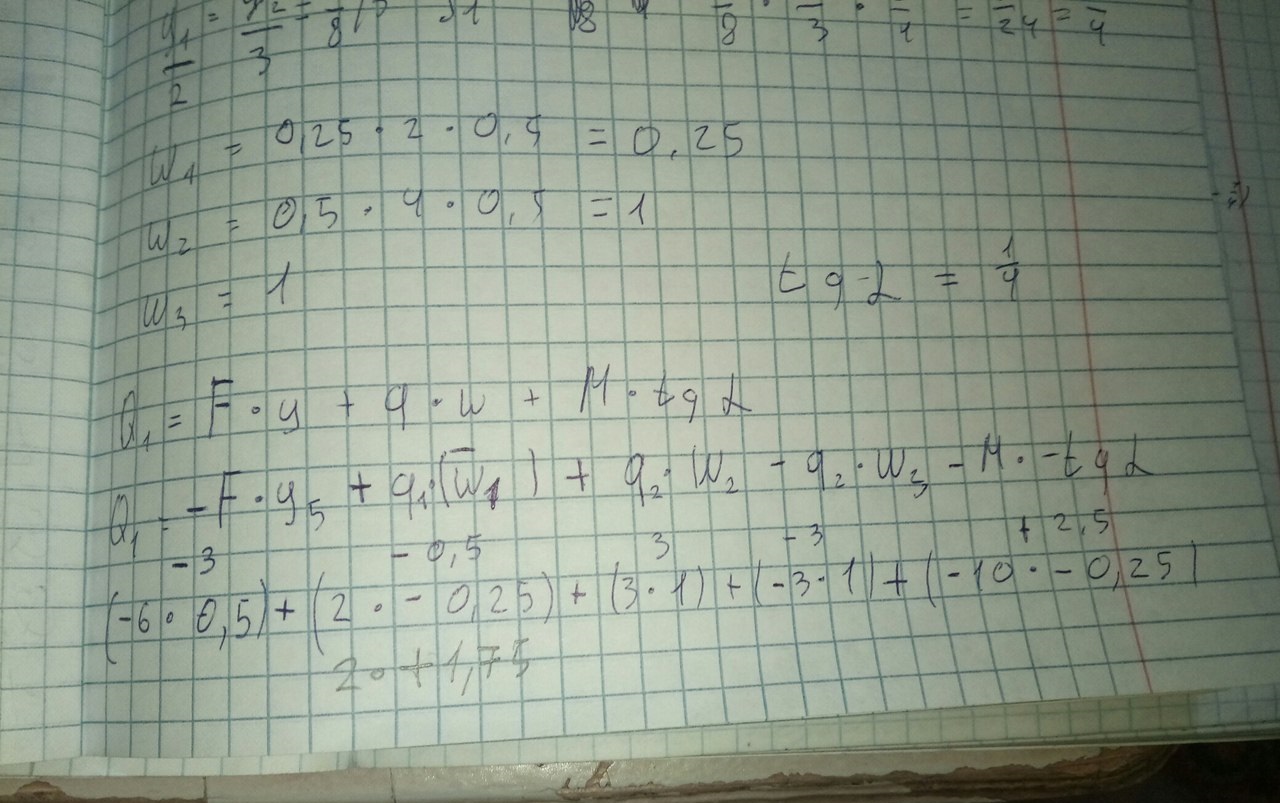 y₁/2 = y₂/3 =
w₁ = 0,25 · 2 · 0,5 = 0,25
w₂ = 0,5 · 4 · 0,5 = 1
w₃ = 1
tg L = 1/4
Q₁ = F · y + q · w + M · tg L
Q₁ = -F · y₅ + q₁ · (w̅₁) + q₂ · w₂ - q₂ · w₃ - M · -tg L
-3 -0,5 3 -3 +2,5
(-6 · 0,5) + (2 · - 0,25) + (3 · 1) + (-3 · 1) + (-10 · - 0,25)
2 · + 1,75